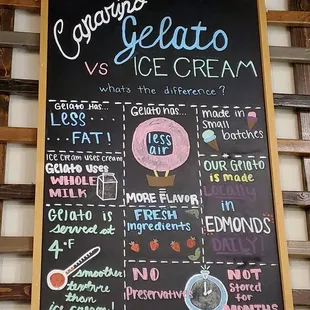 Caparino
Gelato
VS ICE CREAM
what's the difference?
Gelato Has...
LESS
FAT!
Ice Cream uses cream
Gelato uses
WHOLE
MILK
Gelato is
served at
4°F
smoother
texture than
ice cream!
Gelato has...
less
air
MORE FLAVOR
FRESH
Ingredients
NO
Preservatives
made in
small
batches
OUR Gelato
is made
Locally
in
EDMONDS
DAILY!
NOT
Stored
for
MONTHS